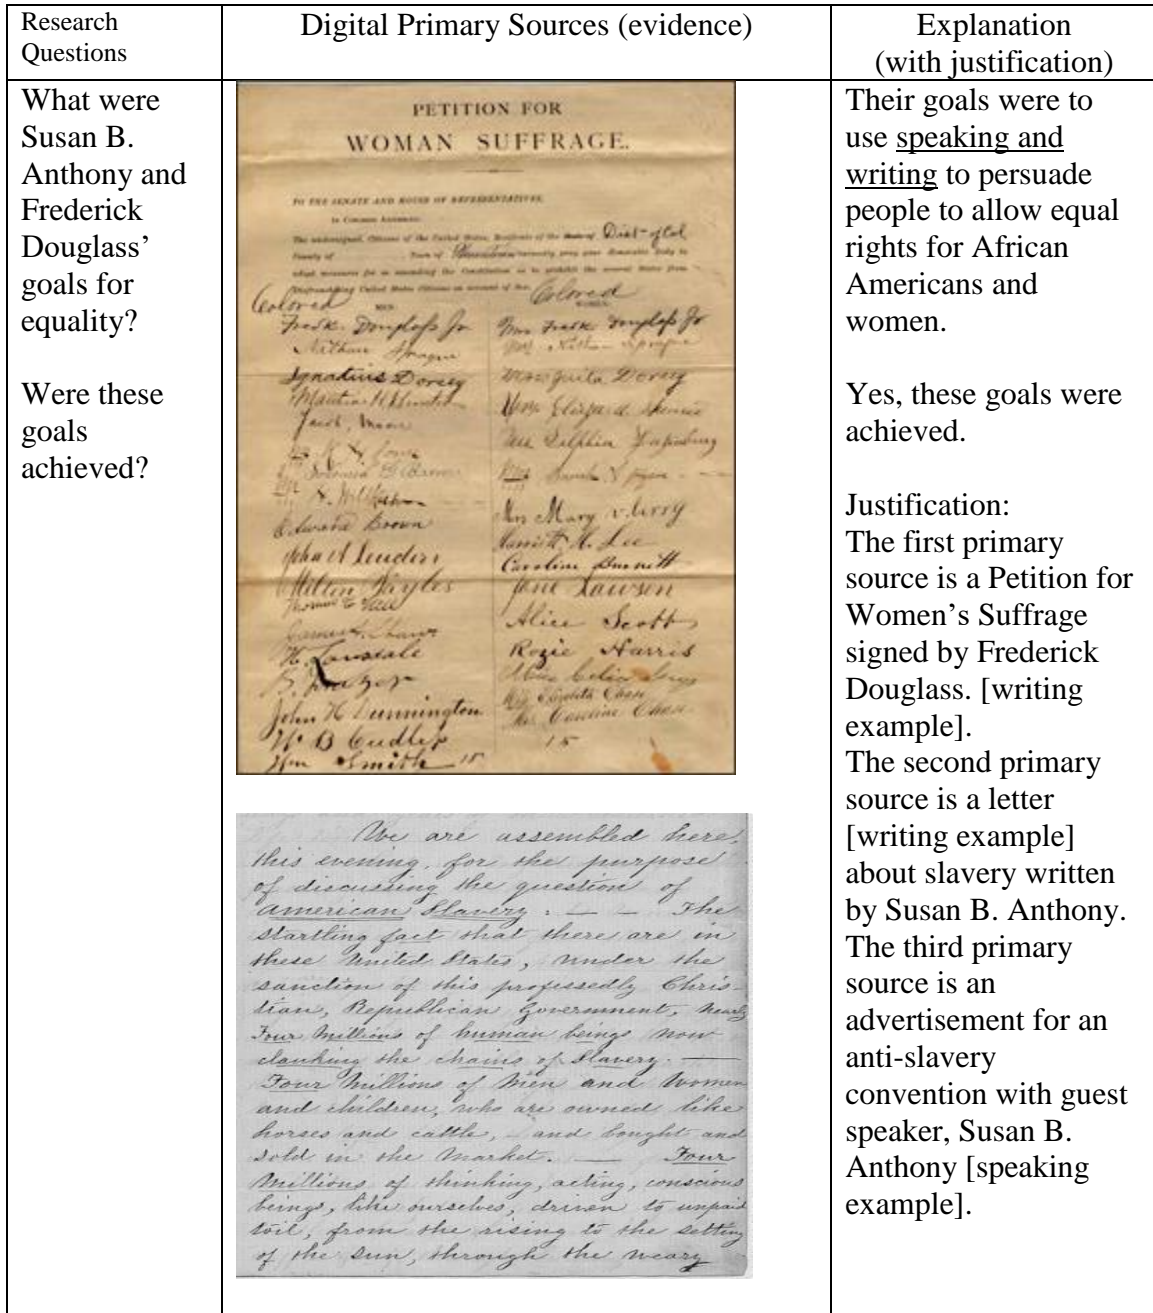 Research
Questions
Digital Primary Sources (evidence)
Explanation
(with justification)
What were
Susan B.
Anthony and
Frederick
Douglass’
goals for
equality?
Were these
goals
achieved?
PETITION FOR
WOMAN SUFFRAGE.
TO THE SENATE AND HOUSE OF REPRESENTATIVES,
in Congress Assembled:
The undersigned, Citizens of the United States, Residents of the State of Dist of Col
County of Town of
adopt measures for so amending the Constitution as to prohibit the several States from
Disfranchising United States Citizens on account of Sex.
Colored Colored
MEN. WOMEN.
Fredk. Douglass Jr Mrs Fredk Douglass Jr
Nathan Sprague
Ignatius Dorsey Dorsey
Mary
Edward Brown Harriett H. Lee
Caroline Burnett
Jane Lawson
Alice Scott
Rozie Harris
John H Dunnington Mrs Elizabeth Chase
Mrs Caroline Chase
15
Wm Smith 15
We are assembled here,
this evening, for the purpose
of discussing the question of
American Slavery. — — The
startling fact that there are in
these United States, under the
sanction of this professedly Chris-
tian, Republican Government, nearly
Four Millions of human beings now
clanking the chains of Slavery. —
Four Millions of Men and Women
and children, who are owned like
horses and cattle, and bought and
sold in the market. — Four
Millions of thinking, acting, conscious
beings, like ourselves, driven to unpaid
toil, from the rising to the setting
of the sun, through the weary
Their goals were to
use speaking and
writing to persuade
people to allow equal
rights for African
Americans and
women.
Yes, these goals were
achieved.
Justification:
The first primary
source is a Petition for
Women’s Suffrage
signed by Frederick
Douglass. [writing
example].
The second primary
source is a letter
[writing example]
about slavery written
by Susan B. Anthony.
The third primary
source is an
advertisement for an
anti-slavery
convention with guest
speaker, Susan B.
Anthony [speaking
example].